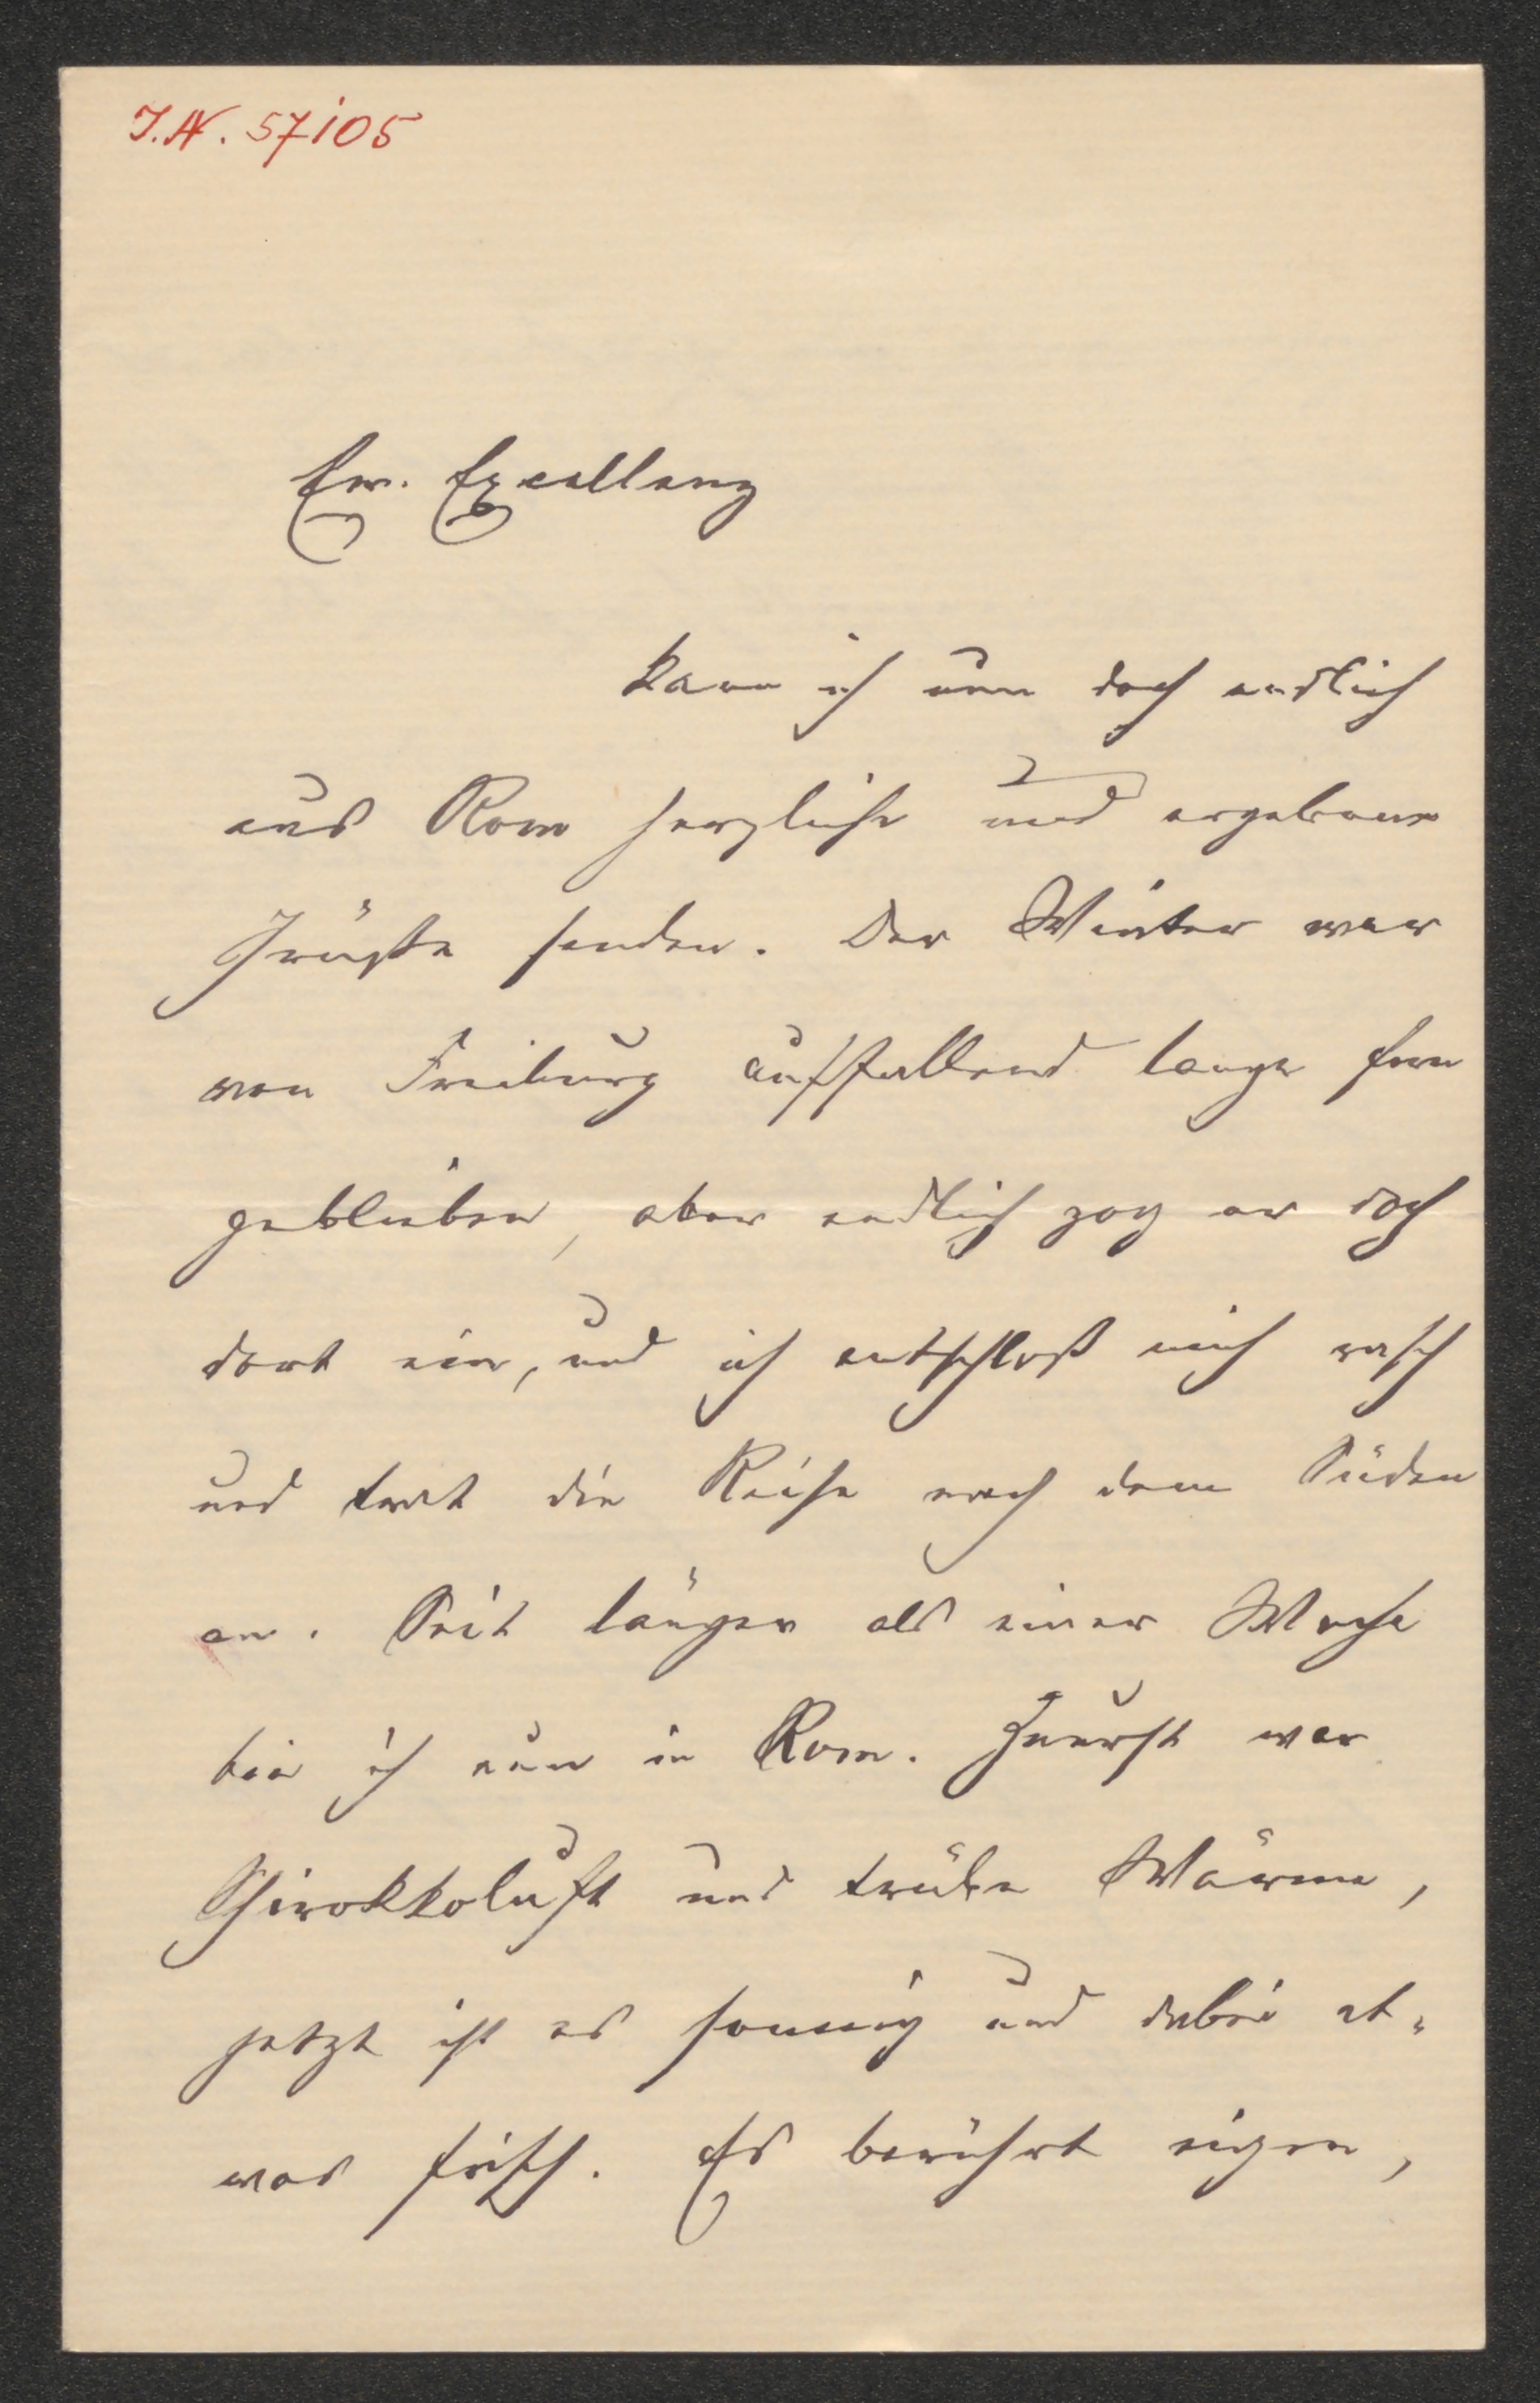 I.N. 57105
Ew. Excellenz
kann ich nun doch endlich
aus Rom herzliche und ergebene
Grüße senden. Der Winter war
von Freiburg auffallend lange fern
geblieben, aber endlich zog er doch
dort ein, und ich entschloß mich rasch
und trat die Reise nach dem Süden
an. Seit länger als einer Woche
bin ich nun in Rom. Zuerst war
Schirokkoluft und trübe Wärme,
jetzt ist es sonnig und dabei et-
was frisch. Es berührt eigen,